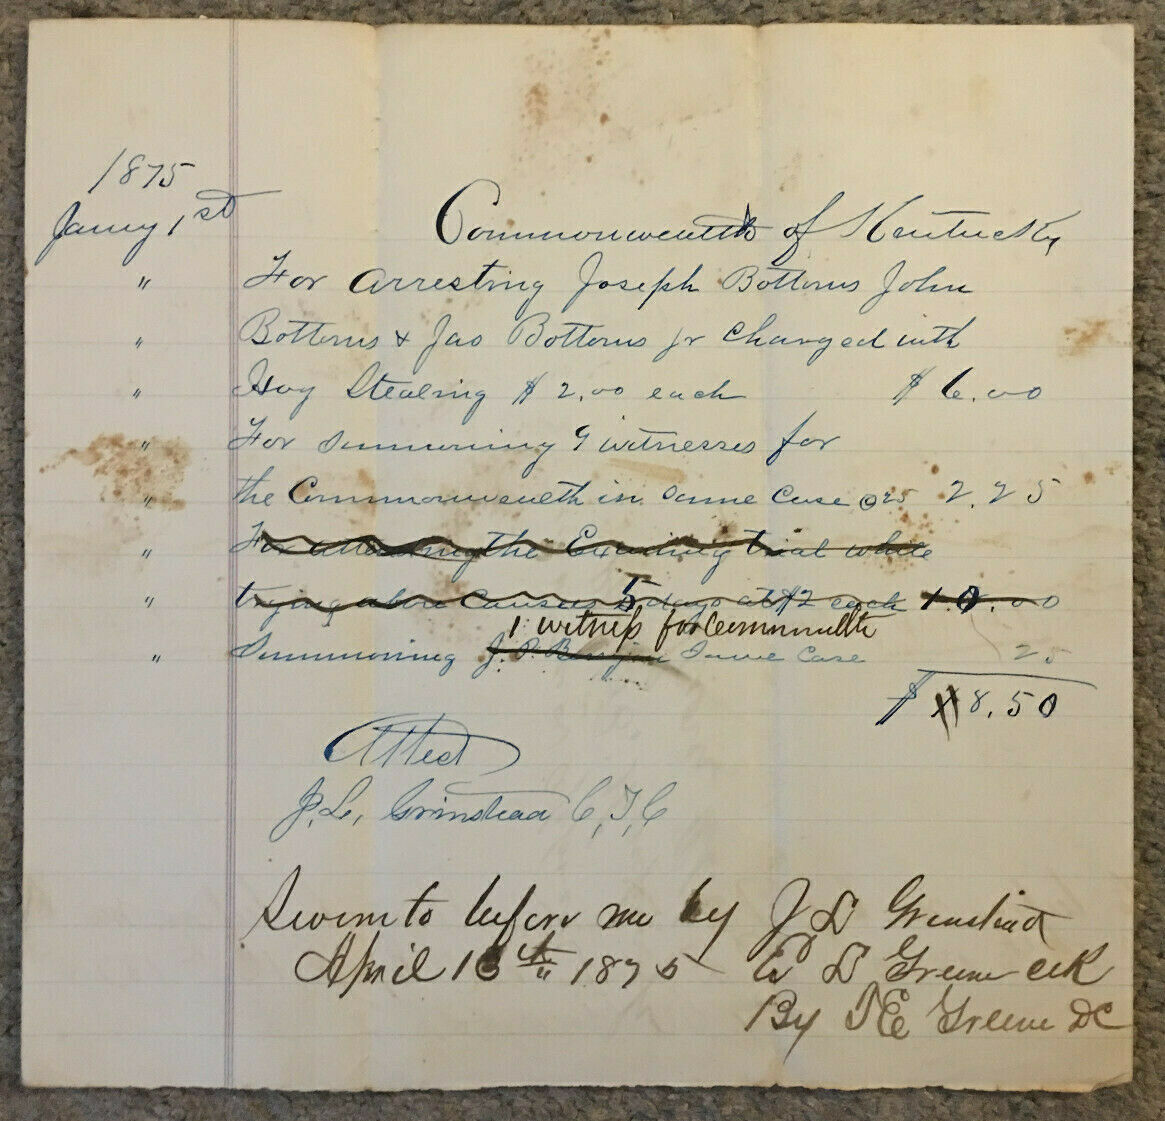 1875
Jany 1st Commonwealth of Kentucky
" For arresting Joseph Bottoms John
" Bottoms & Jas Bottoms jr charged with
" Hog Stealing $2.00 each $6.00
" For summoning 9 witnesses for
" the Commonwealth in same case @25 2.25
" For attending the Examining trial while
" trying above causes 5 days at $2 each 10.00
1 witness for Commonwealth
" Summoning J. P. same case 25
$ 8.50
Attest
J. L. Grinstead C, T, C
Sworn to before me by J L Grinstead
April 13th 1875 E L Greene clk
By T E Greene DC